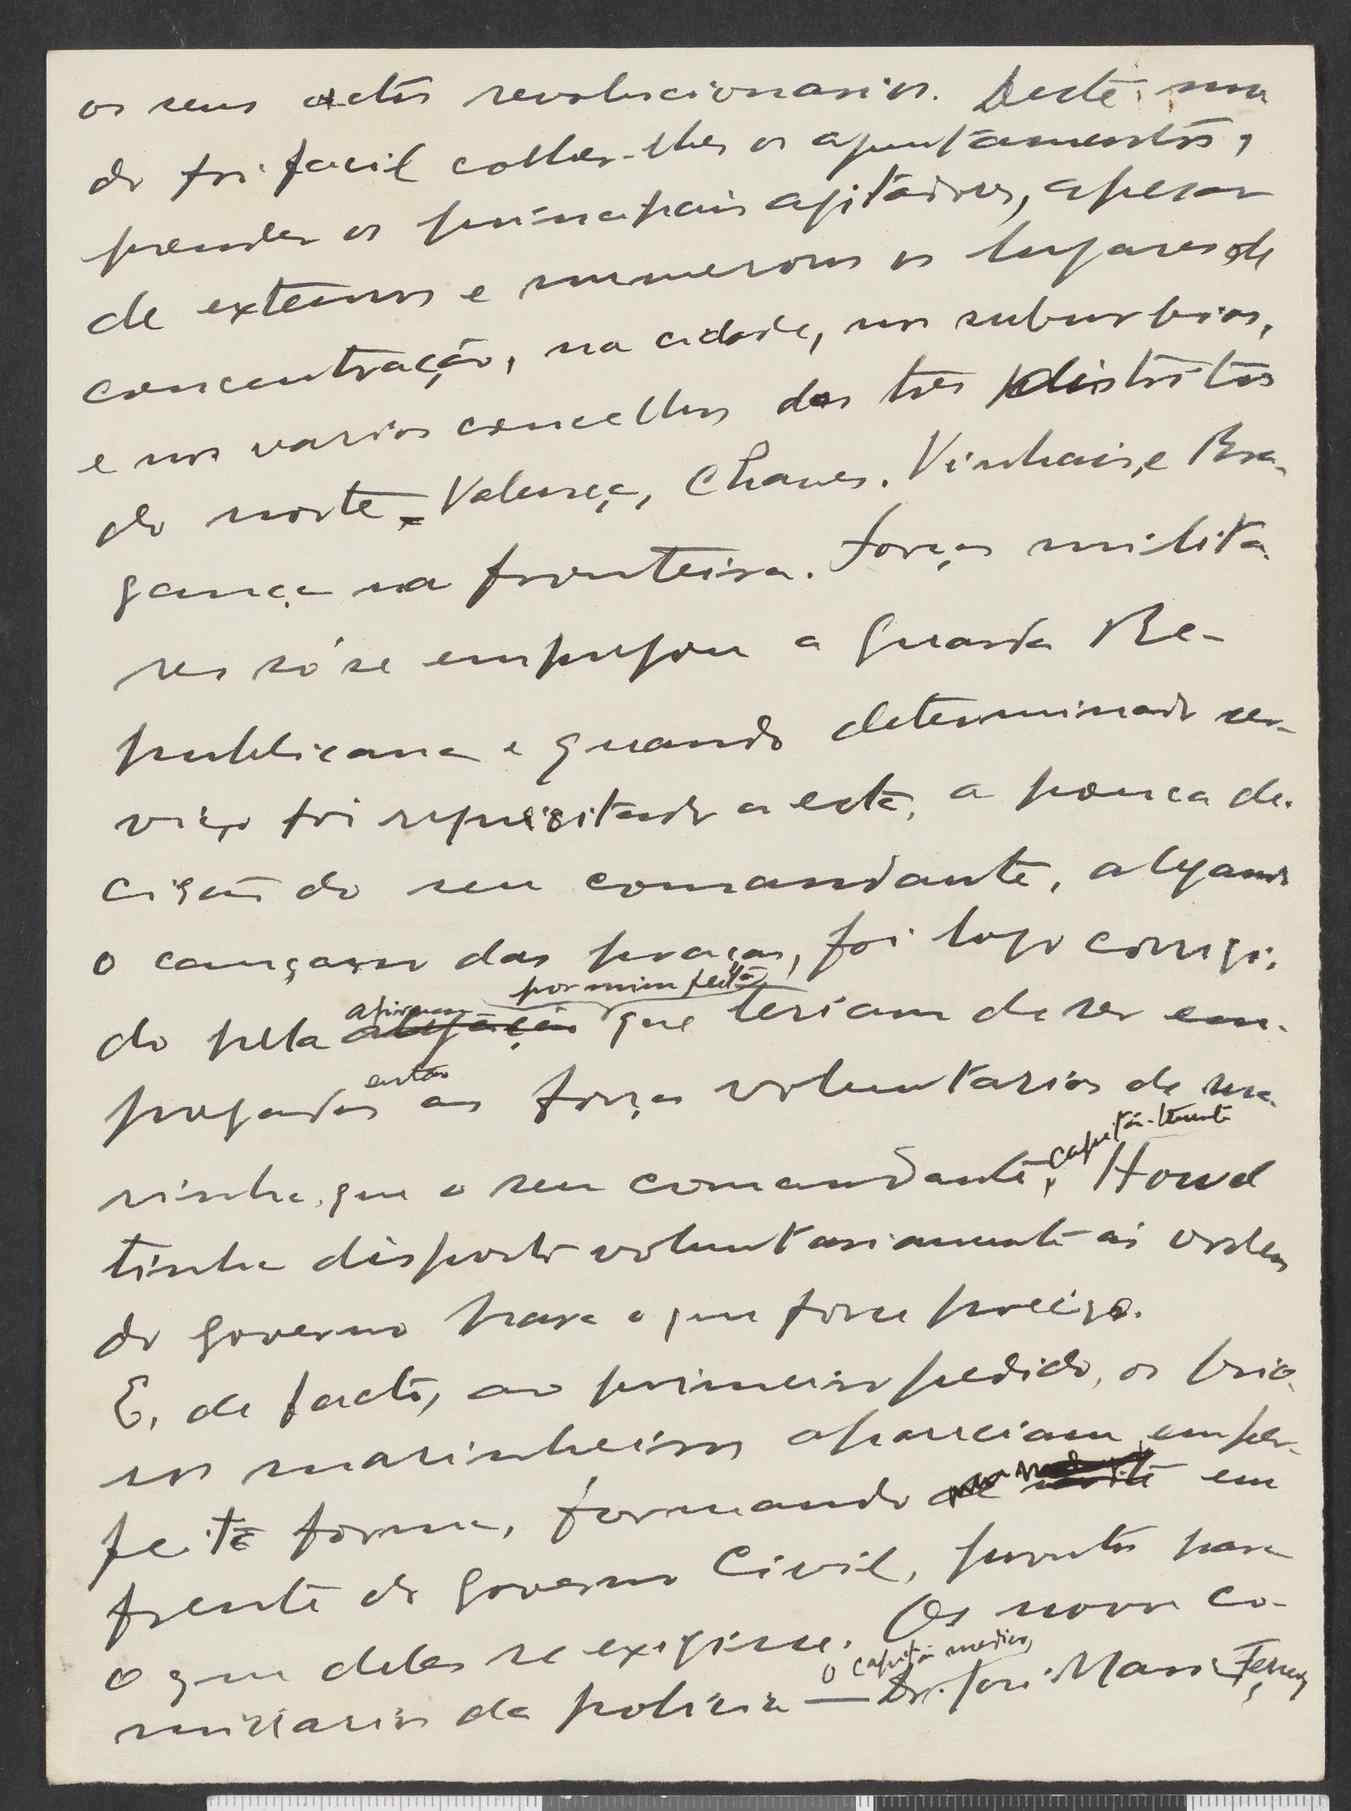 os seus actos revolucionarios. Deste mo
do foi facil colher-lhes os apontamentos,
prender os principais agitadores, apesar
de extensos e numerosos os lugares de
concentração, na cidade, nos suburbios,
e nos varios concelhos dos tres distritos
do norte, Valença, Chaves, Vinhais, e Bra-
gança na fronteira. Forças milita-
res só se empregou a Guarda Re-
publicana e quando determinado ser-
viço foi requisitado a esta, a pouca de-
cisão do seu comandante, alegando
o cançaço das praças, foi logo corrigi-
por mim feita
do pela alegação que teriam de ser em-
então
pregadas as forças voluntarias de ma-
capitão-tenente
rinha, que o seu comandante, Howel
tinha disposto voluntariamente ás ordens
do governo para o que fosse precizo.
E, de facto, ao primeiro pedido, os brio-
sos marinheiros apareciam em per-
feita forma, formando em
frente do Governo Civil, prontos para
o que deles se exigisse. Os novos co-
o capitão medico,
missarios da policia — Dr. José Maria Ferreira